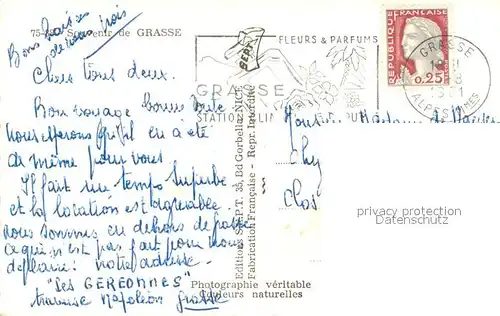 75- Souvenir de GRASSE
Bons baisers
de nous trois
Chers tous deux.
Bon voyage bonne route
nous espérons qu'il en a été
de même pour vous
Il fait un temps superbe
et la location est agréable
nous sommes en dehors de
ce qui n'est pas fait pour nous
déplaire: notre adresse
"Les GEREONNES"
traverse Napoléon Grasse
FLEURS & PARFUMS
GRASSE
STATION CLIM
RÉPUBLIQUE
FRANÇAISE
0,25
POSTES
GRASSE
ALPES MMES
Editions S.E.P.T. 35, Bd Gorbella-NICE
Fabrication Française - Repr. Interdite
Monsieur Madame
Chez
Clos
privacy protection
Datenschutz
Photographie véritable
Couleurs naturelles